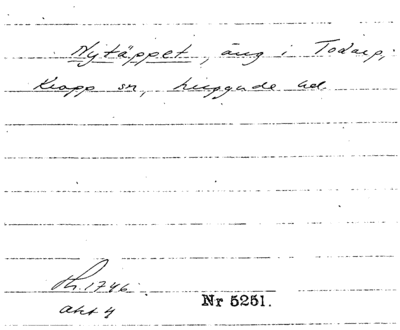 Nytäppet, äng i Todarp,
Klapp sn, huggude hd.
Kh. 1746
akt 4
Nr 5251.